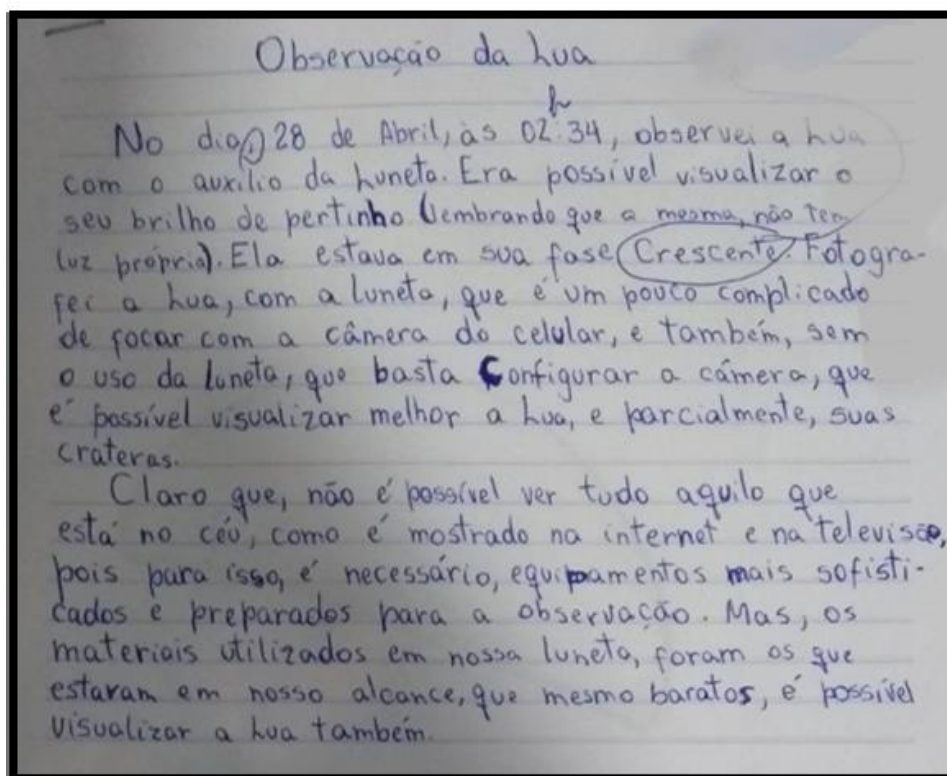 Observação da Lua
No dia, 28 de Abril, às 02h:34, observei a Lua
com o auxílio da luneta. Era possível visualizar o
seu brilho de pertinho (lembrando que a mesma, não tem
luz própria). Ela estava em sua fase Crescente. Fotogra-
fei a Lua, com a luneta, que é um pouco complicado
de focar com a câmera do celular, e também, sem
o uso da luneta, que basta configurar a câmera, que
é possível visualizar melhor a Lua, e parcialmente, suas
crateras.
Claro que, não é possível ver tudo aquilo que
está no céu, como é mostrado na internet e na televisão,
pois para isso, é necessário, equipamentos mais sofisti-
cados e preparados para a observação. Mas, os
materiais utilizados em nossa luneta, foram os que
estavam em nosso alcance, que mesmo baratos, é possível
visualizar a Lua também.